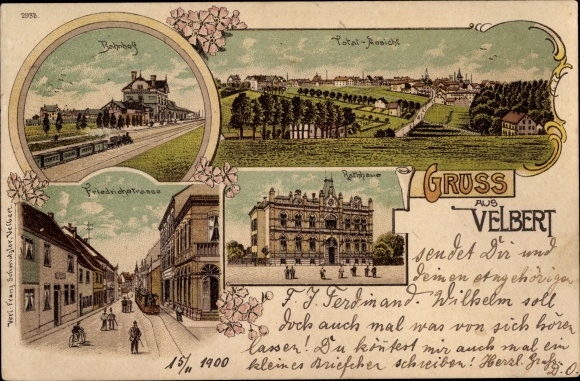 2983.
Bahnhof
Total-Ansicht
Friedrichstrasse
Rathhaus
GRUSS
AUS
VELBERT
Verl. Franz Schmitzler, Velbert.
sendet Dir und
deinen angehörigen
F. J. Ferdinand. Wilhelm soll
doch auch mal was von sich hören
lassen! Du könntest mir auch mal ein
kleines Briefchen schreiben! Herzl. Gruß
15/11 1900
D. O.